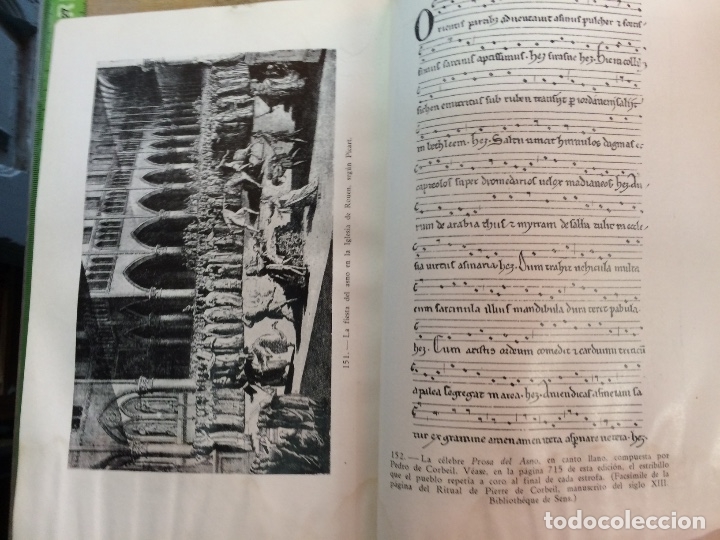 151. — La fiesta del asno en la Iglesia de Rouen, según Picart.
Orientis partibus adventavit asinus pulcher & fortis
simus sarcinis aptissimus. hez. sirasne hez. Hic in colli
sichen enutritus sub ruben transiit p iordanem saliit
in bethleem. hez. Saltu uincit hinnulos dagmas &
capreolos super dromedarios uelox madianeos. hez. Au
rum de arabia thus & myrram de saba tulit in eccle
sia uirtus asinaria. hez. Dum trahit uehicula multa
cum sarcinula illius mandibula dura terit pabula.
hez. Cum aristis ordeum comedit & carduum triticum
a palea segregat in area. hez. Amen dicas asine iam sa
tur ex gramine amen amen itera aspernare uetera. hez.
152. — La célebre Prosa del Asno, en canto llano, compuesta por
Pedro de Corbeil. Véase, en la página 715 de esta edición, el estribillo
que el pueblo repetía a coro al final de cada estrofa. (Facsímile de la
página del Ritual de Pierre de Corbeil, manuscrito del siglo XIII.
Bibliothéque de Sens.)
todocoleccion.net